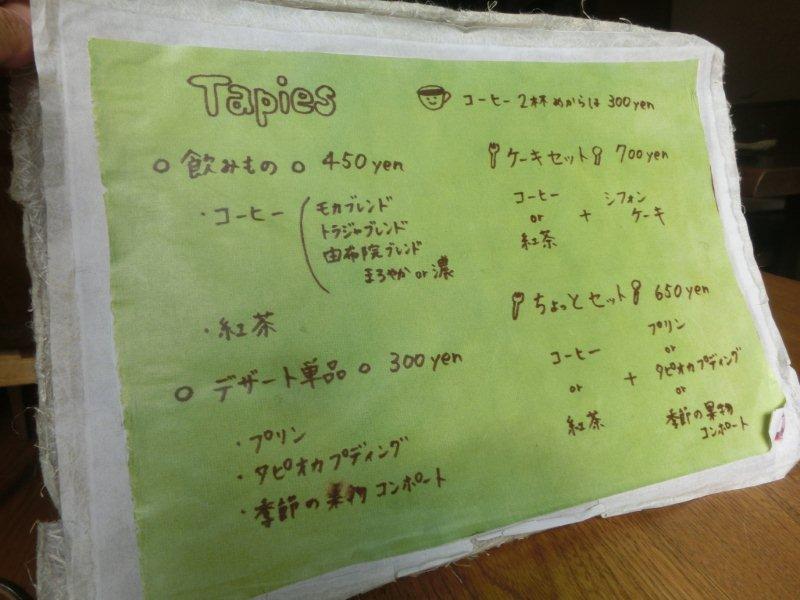 Tapies
コーヒー 2杯めからは 300yen
○ 飲みもの ○ 450yen
・コーヒー
モカブレンド
トラジャブレンド
由布院ブレンド
まろやか or 濃
・紅茶
○ デザート単品 ○ 300yen
・プリン
・タピオカプディング
・季節の果物コンポート
ケーキセット 700yen
コーヒー
or
紅茶
+
シフォン
ケーキ
ちょっとセット 650yen
コーヒー
or
紅茶
+
プリン
or
タピオカプディング
or
季節の果物
コンポート